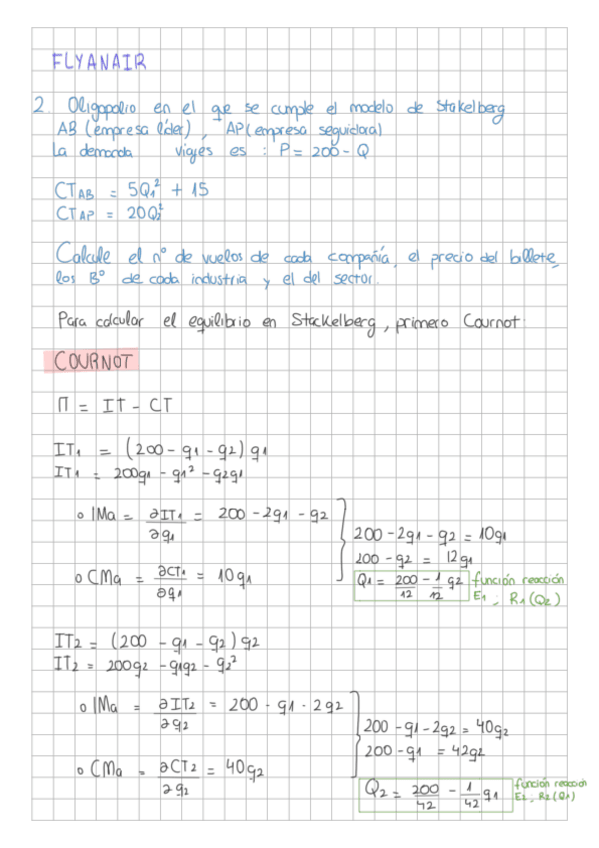 FLYANAIR
2. Oligopolio en el que se cumple el modelo de Stakelberg
AB (empresa líder), AP (empresa seguidora)
La demanda viajes es : P = 200 - Q
CT_AB = 5Q₁² + 15
CT_AP = 20Q₂²
Calcule el nº de vuelos de cada compañía, el precio del billete,
los Bº de cada industria y el del sector.
Para calcular el equilibrio en Stackelberg, primero Cournot:
COURNOT
Π = IT - CT
IT₁ = (200 - q₁ - q₂) q₁
IT₁ = 200q₁ - q₁² - q₂q₁
o IMa = ∂IT₁/∂q₁ = 200 - 2q₁ - q₂
o CMa = ∂CT₁/∂q₁ = 10q₁
200 - 2q₁ - q₂ = 10q₁
200 - q₂ = 12q₁
Q₁ = 200/12 - 1/12 q₂
función reacción
E₁ ; R₁(Q₂)
IT₂ = (200 - q₁ - q₂) q₂
IT₂ = 200q₂ - q₁q₂ - q₂²
o IMa = ∂IT₂/∂q₂ = 200 - q₁ - 2q₂
o CMa = ∂CT₂/∂q₂ = 40q₂
200 - q₁ - 2q₂ = 40q₂
200 - q₁ = 42q₂
Q₂ = 200/42 - 1/42 q₁
función reacción
E₂, R₂(Q₁)